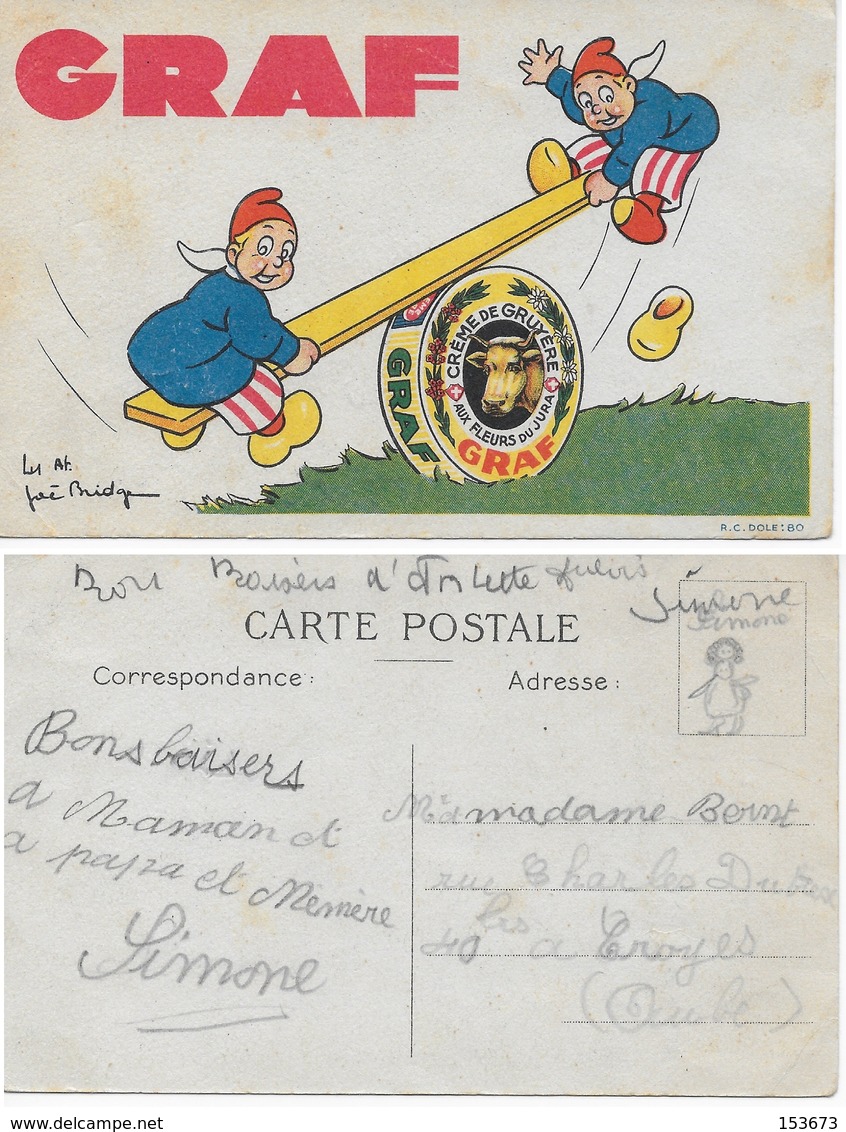 GRAF
CRÈME DE GRUYÈRE
AUX FLEURS DU JURA
GRAF
GRAF
Les At.
Joë Bridge
R.C. DOLE: 80
Bon Baisers d'
Simone
Simone
CARTE POSTALE
Correspondance:
Adresse:
Bons baisers
a Maman et
a papa et Mémère
Simone
madame
rue Charles
40 bis a Troyes
(Aube)
www.delcampe.net
153673